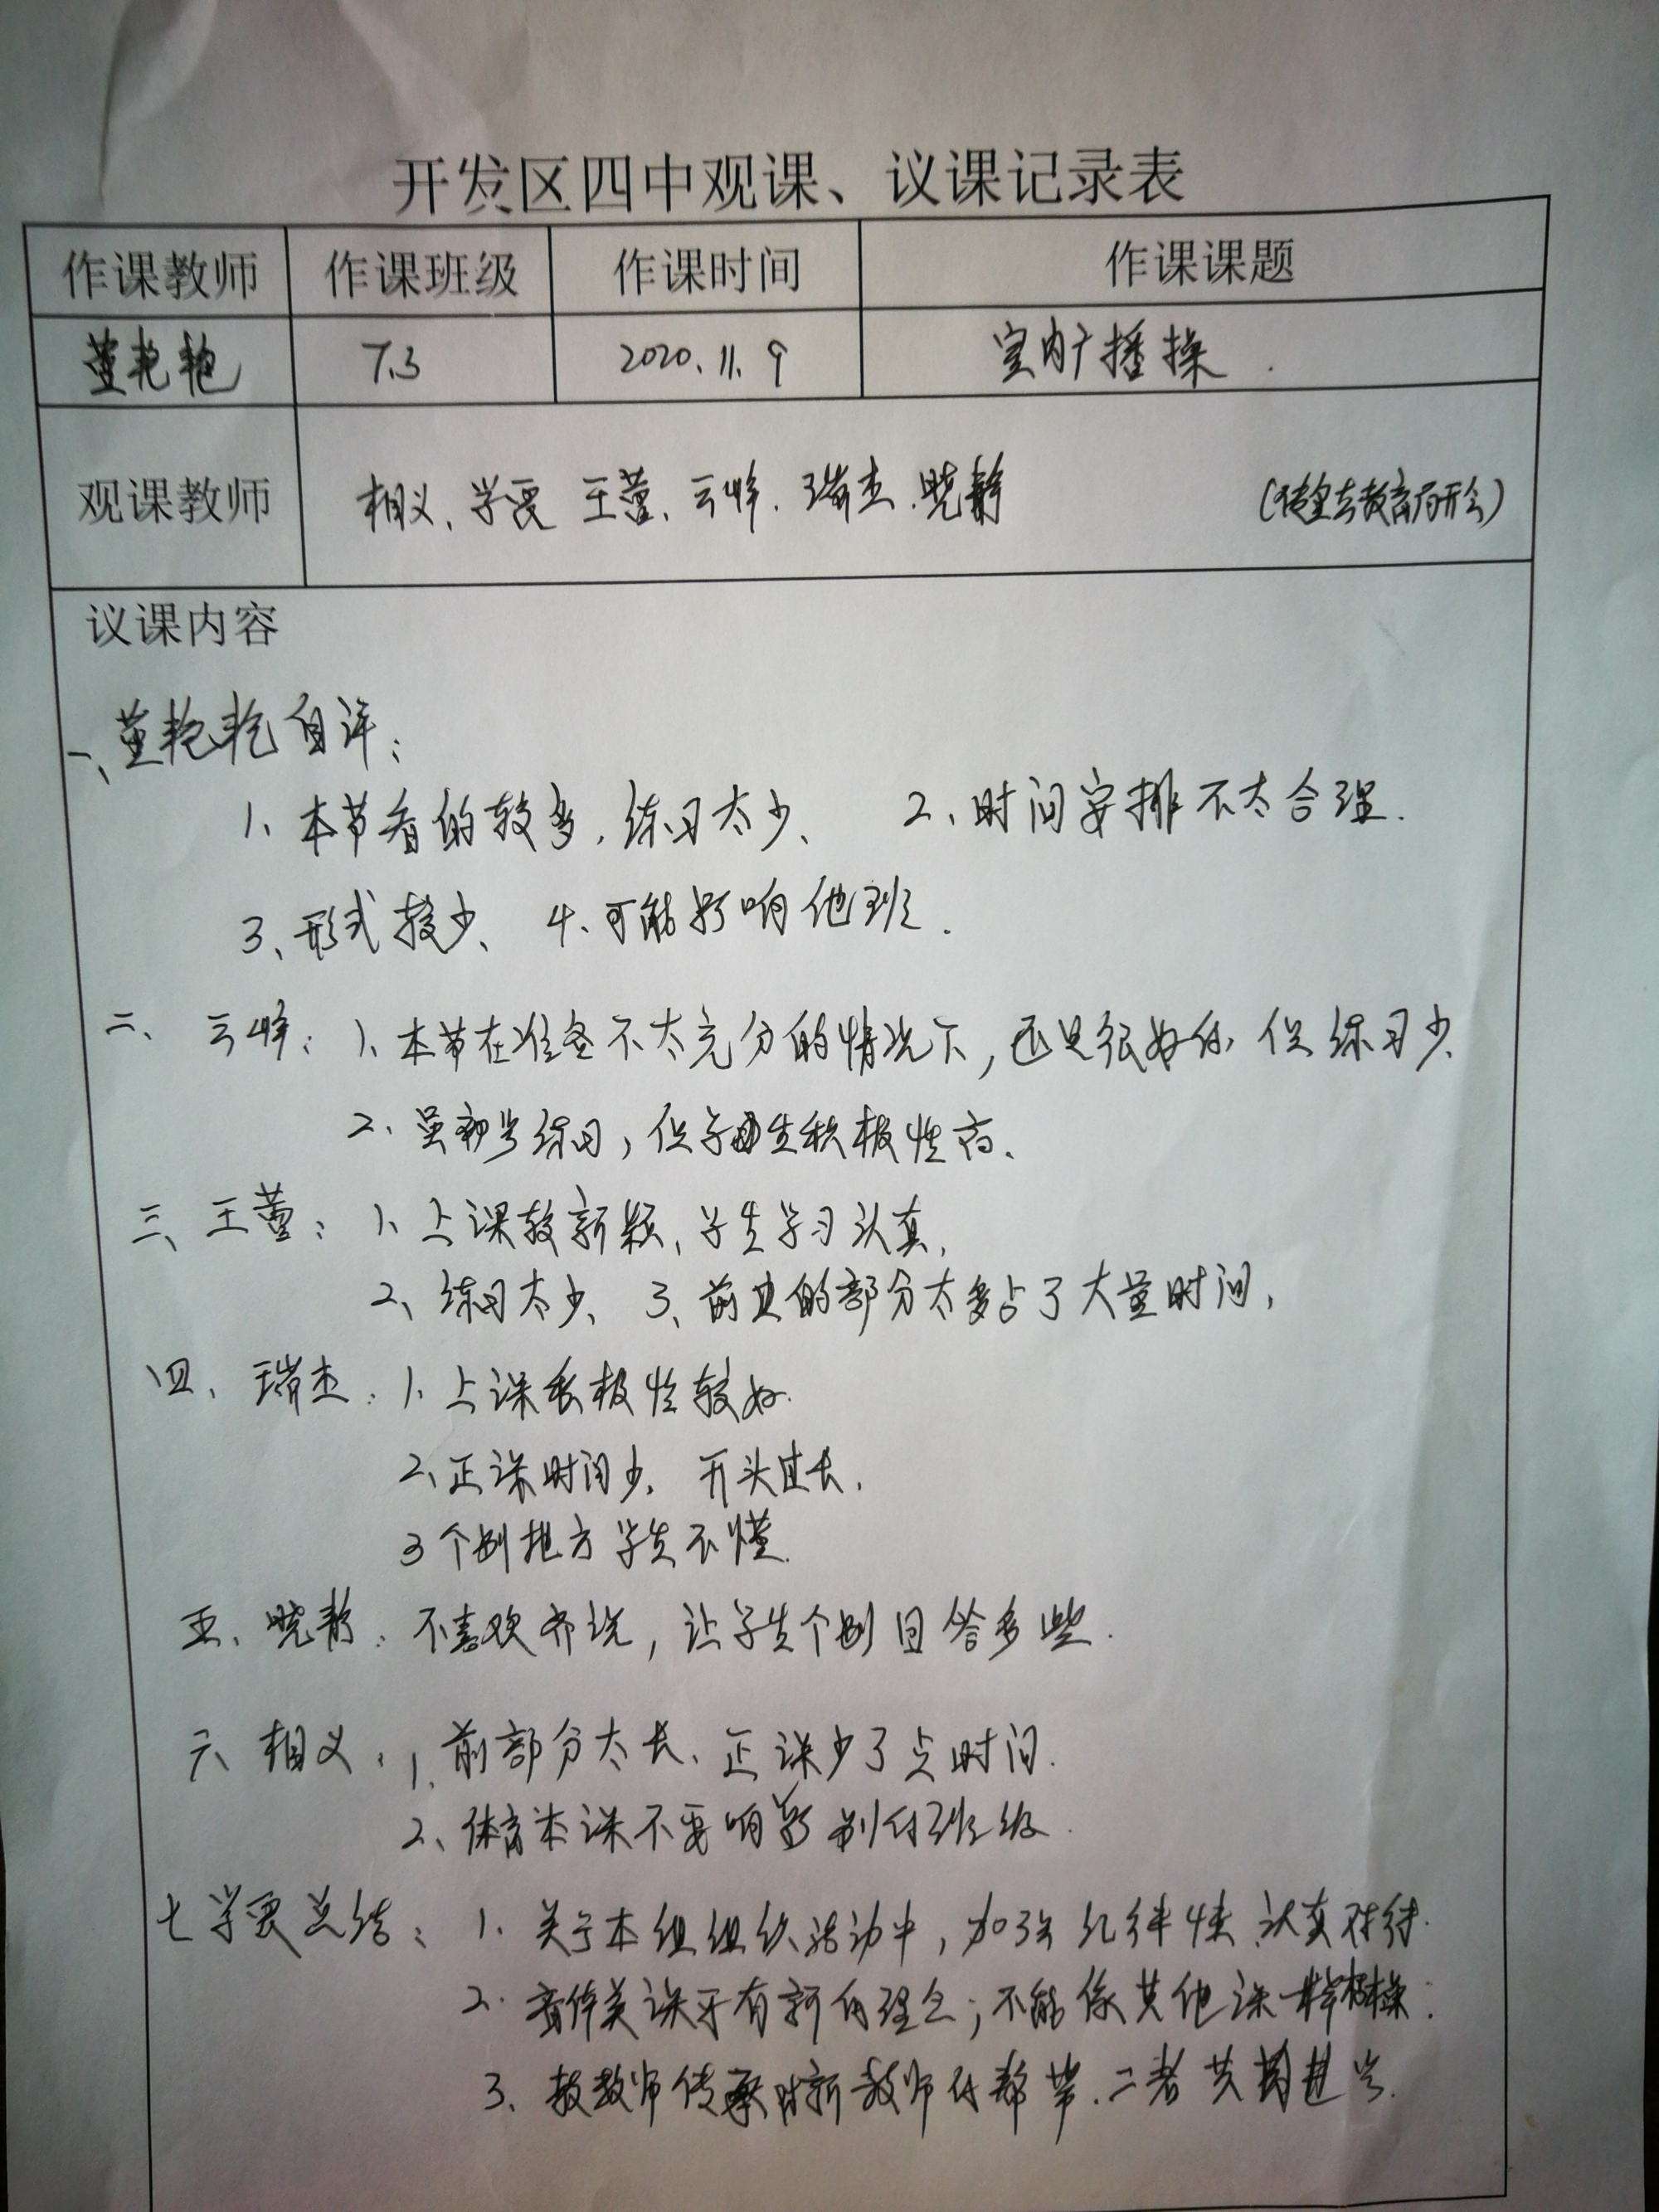 开发区四中观课、议课记录表
作课教师 作课班级 作课时间 作课课题
董艳艳 7.3 2020.11.9 室内广播操
观课教师 相义、学要 王萱、云峰、瑞杰、晓静 去教育局开会)
议课内容
一、董艳艳自评：
1、本节看的较多，练习太少、 2、时间安排不太合理.
3、形式较少、 4、可能影响他班.
二、云峰：1、本节在准备不太充分的情况下，还是很好的 但练习少、
2、虽初步练习，但学生积极性高、
三、王萱：1、上课较新颖、学生学习认真，
2、练习太少、3、前边的部分太多占了大量时间，
四、瑞杰：1、上课积极性较好.
2、正课时间少，开头过长，
3 个别地方学生不懂.
五、晓静：不喜欢齐说，让学生个别回答多些.
六 相义：1、前部分太长、正课少了点时间.
2、体育课不要响影别的班级.
七 学要总结：1. 关于本组组织活动中，加强纪律性、认真对待.
2. 音体美课牙有新的理念；不能像其他课一样
3、教师传承对新教师的帮带.二者共同进步.